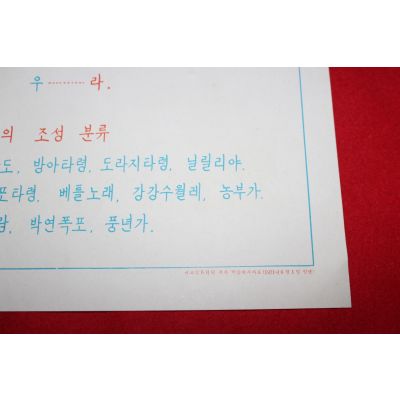 우 ········· 라.
의 조성 분류
도, 방아타령, 도라지타령, 닐릴리야.
포타령, 베틀노래, 강강수월레, 농부가.
람, 박연폭포, 풍년가.